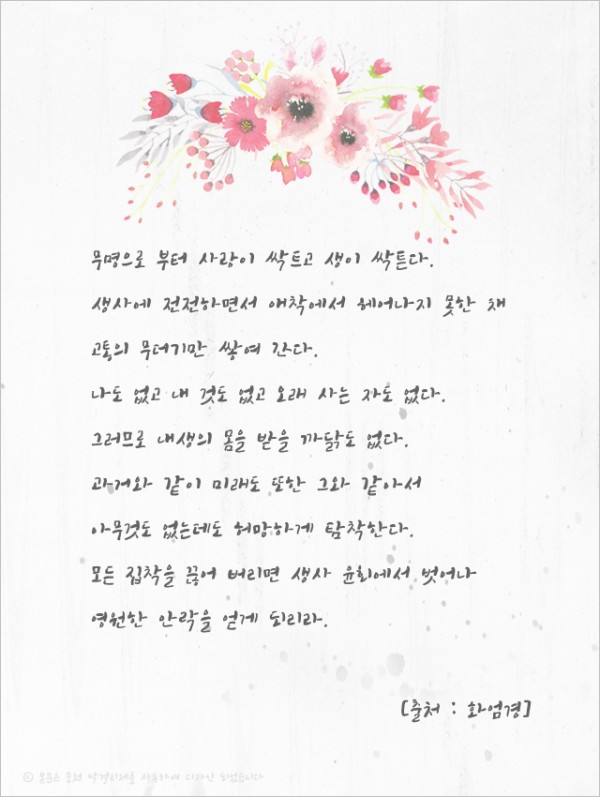 무명으로 부터 사랑이 싹트고 생이 싹튼다.
생사에 전전하면서 애착에서 헤어나지 못한 채
고통의 무더기만 쌓여 간다.
나도 없고 내 것도 없고 오래 사는 자도 없다.
그러므로 내생의 몸을 받을 까닭도 없다.
과거와 같이 미래도 또한 그와 같아서
아무것도 없는데도 허망하게 탐착한다.
모든 집착을 끊어 버리면 생사 윤회에서 벗어나
영원한 안락을 얻게 되리라.
[출처 : 화엄경]